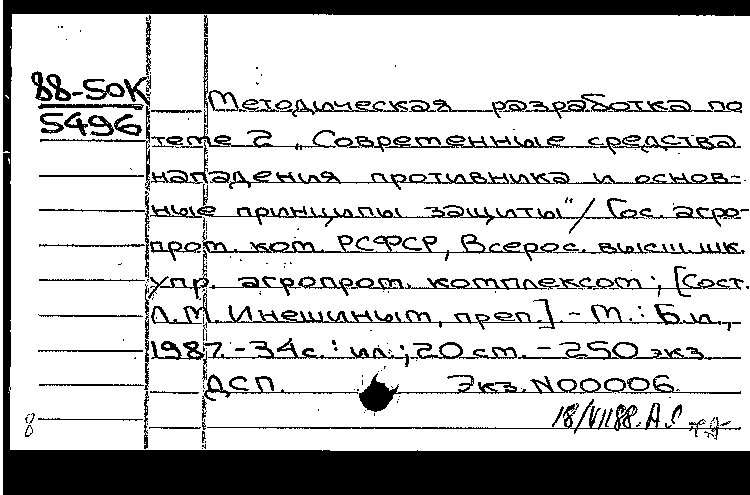 88-50К
5496
Методическая разработка по
теме 2 „Современные средства
нападения противника и основ-
ные принципы защиты"/ Гос. агро-
пром. ком. РСФСР, Всерос. высш. шк.
упр. агропром. комплексом; [Сост.
Л.М. Инешиным, преп.]. - М.: Б.и.,
1987. - 34с.: ил.; 20 см. - 250 экз.
ДСП. Экз. N00006.
18/VII88.
8